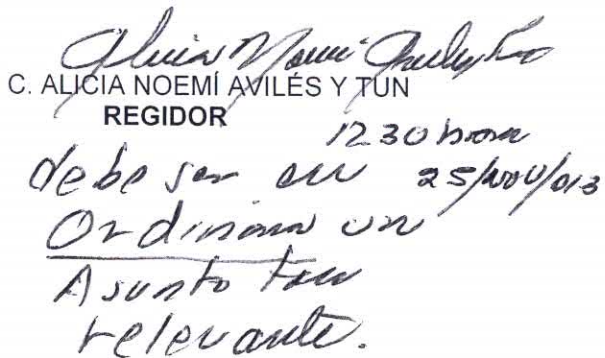 Alicia Noemi Aviles y Tun
C. ALICIA NOEMÍ AVILÉS Y TUN
REGIDOR
1230 horas
debe ser en 25/nov/013
Ordinaria un
Asunto tan
relevante.